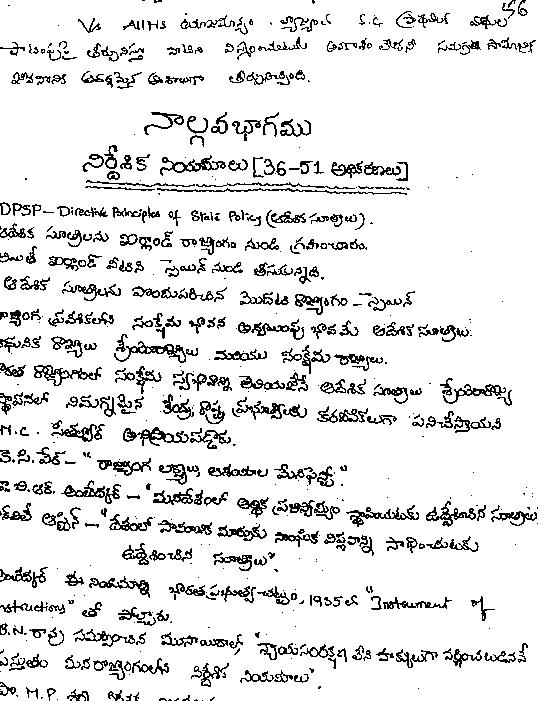 V/s AIIMS ఉదాహరణ్యం. S.C
పాటింపుపై తీర్పునిస్తూ వాటిని విస్మరించుటకు అవకాశం లేదని సమగ్ర సామాజిక
తీర్పునిచ్చింది.
నాల్గవభాగము
నిర్దేశిక నియమాలు [36-51 అధికరణలు]
DPSP - Directive Principles of State Policy (ఆదేశిక సూత్రాలు).
ఆదేశిక సూత్రాలను ఐర్లాండ్ రాజ్యాంగం నుండి గ్రహించారు.
అయితే ఐర్లాండ్ వీటిని స్పెయిన్ నుండి తీసుకున్నది.
ఆదేశిక సూత్రాలను పొందుపరిచిన మొదటి రాజ్యాంగం - స్పెయిన్
రాజ్యాంగ ప్రవేశికలోని సంక్షేమ భావన ఆదేశిక సూత్రాలు.
ఆధునిక రాజ్యాలు శ్రేయోరాజ్యాలు మరియు సంక్షేమ రాజ్యాలు.
భారత రాజ్యాంగంలో సంక్షేమ స్వభావాన్ని తెలియజేసే ఆదేశిక సూత్రాలు శ్రేయోరాజ్య
స్థాపనలో నిమగ్నమైన కేంద్ర, రాష్ట్ర ప్రభుత్వాలకు కరదీపికలుగా పనిచేస్తాయని
M.C. సెతల్వాడ్ అభిప్రాయపడ్డారు.
కె.సి.వేర్ - "రాజ్యాంగ లక్ష్యాలు, ఆశయాల మేనిఫెస్టో".
బి.ఆర్. అంబేద్కర్ - "మనదేశంలో ఆర్థిక ప్రజాస్వామ్యం స్థాపించుటకు ఉద్దేశించిన సూత్రాలు
ఆస్టిన్ - "దేశంలో సామాజిక మార్పుకు సాంఘిక విప్లవాన్ని సాధించుటకు
ఉద్దేశించిన సూత్రాలు".
అంబేద్కర్ ఈ నియమాలన్ని భారత ప్రభుత్వ చట్టం, 1935 లో "Instrument of
Instructions" తో పోల్చారు.
B.N. రావు సమర్పించిన ముసాయిదాలో, "న్యాయసంరక్షణ లేని హక్కులుగా వర్ణించబడినవే
ప్రస్తుతం మన రాజ్యాంగంలోని నిర్దేశిక నియమాలు".
M.P.